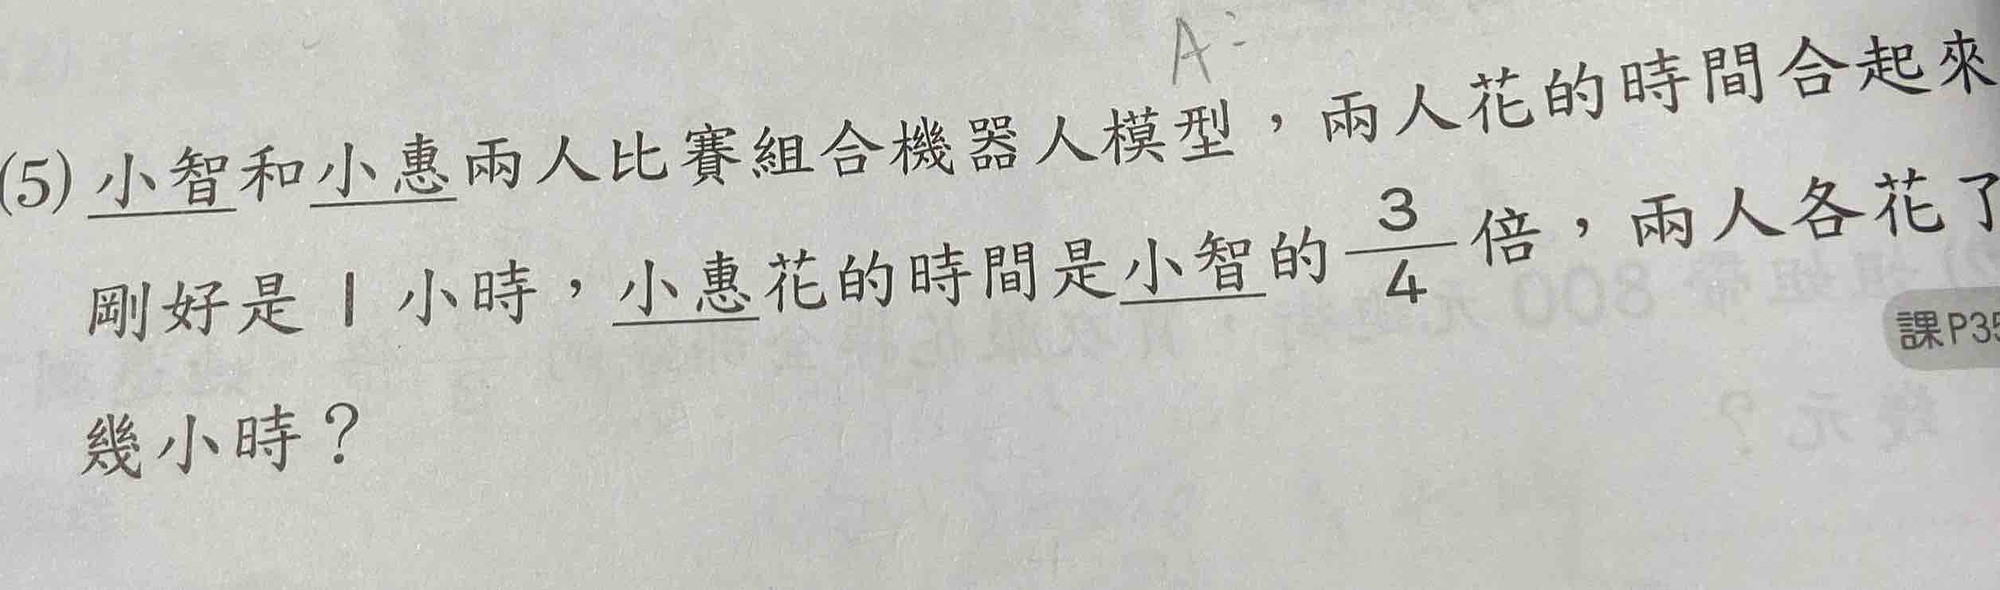 A:
(5) 小智和小惠兩人比賽組合機器人模型，兩人花的時間合起來
剛好是 1 小時，小惠花的時間是小智的 3/4 倍，兩人各花了
課P35
幾小時？